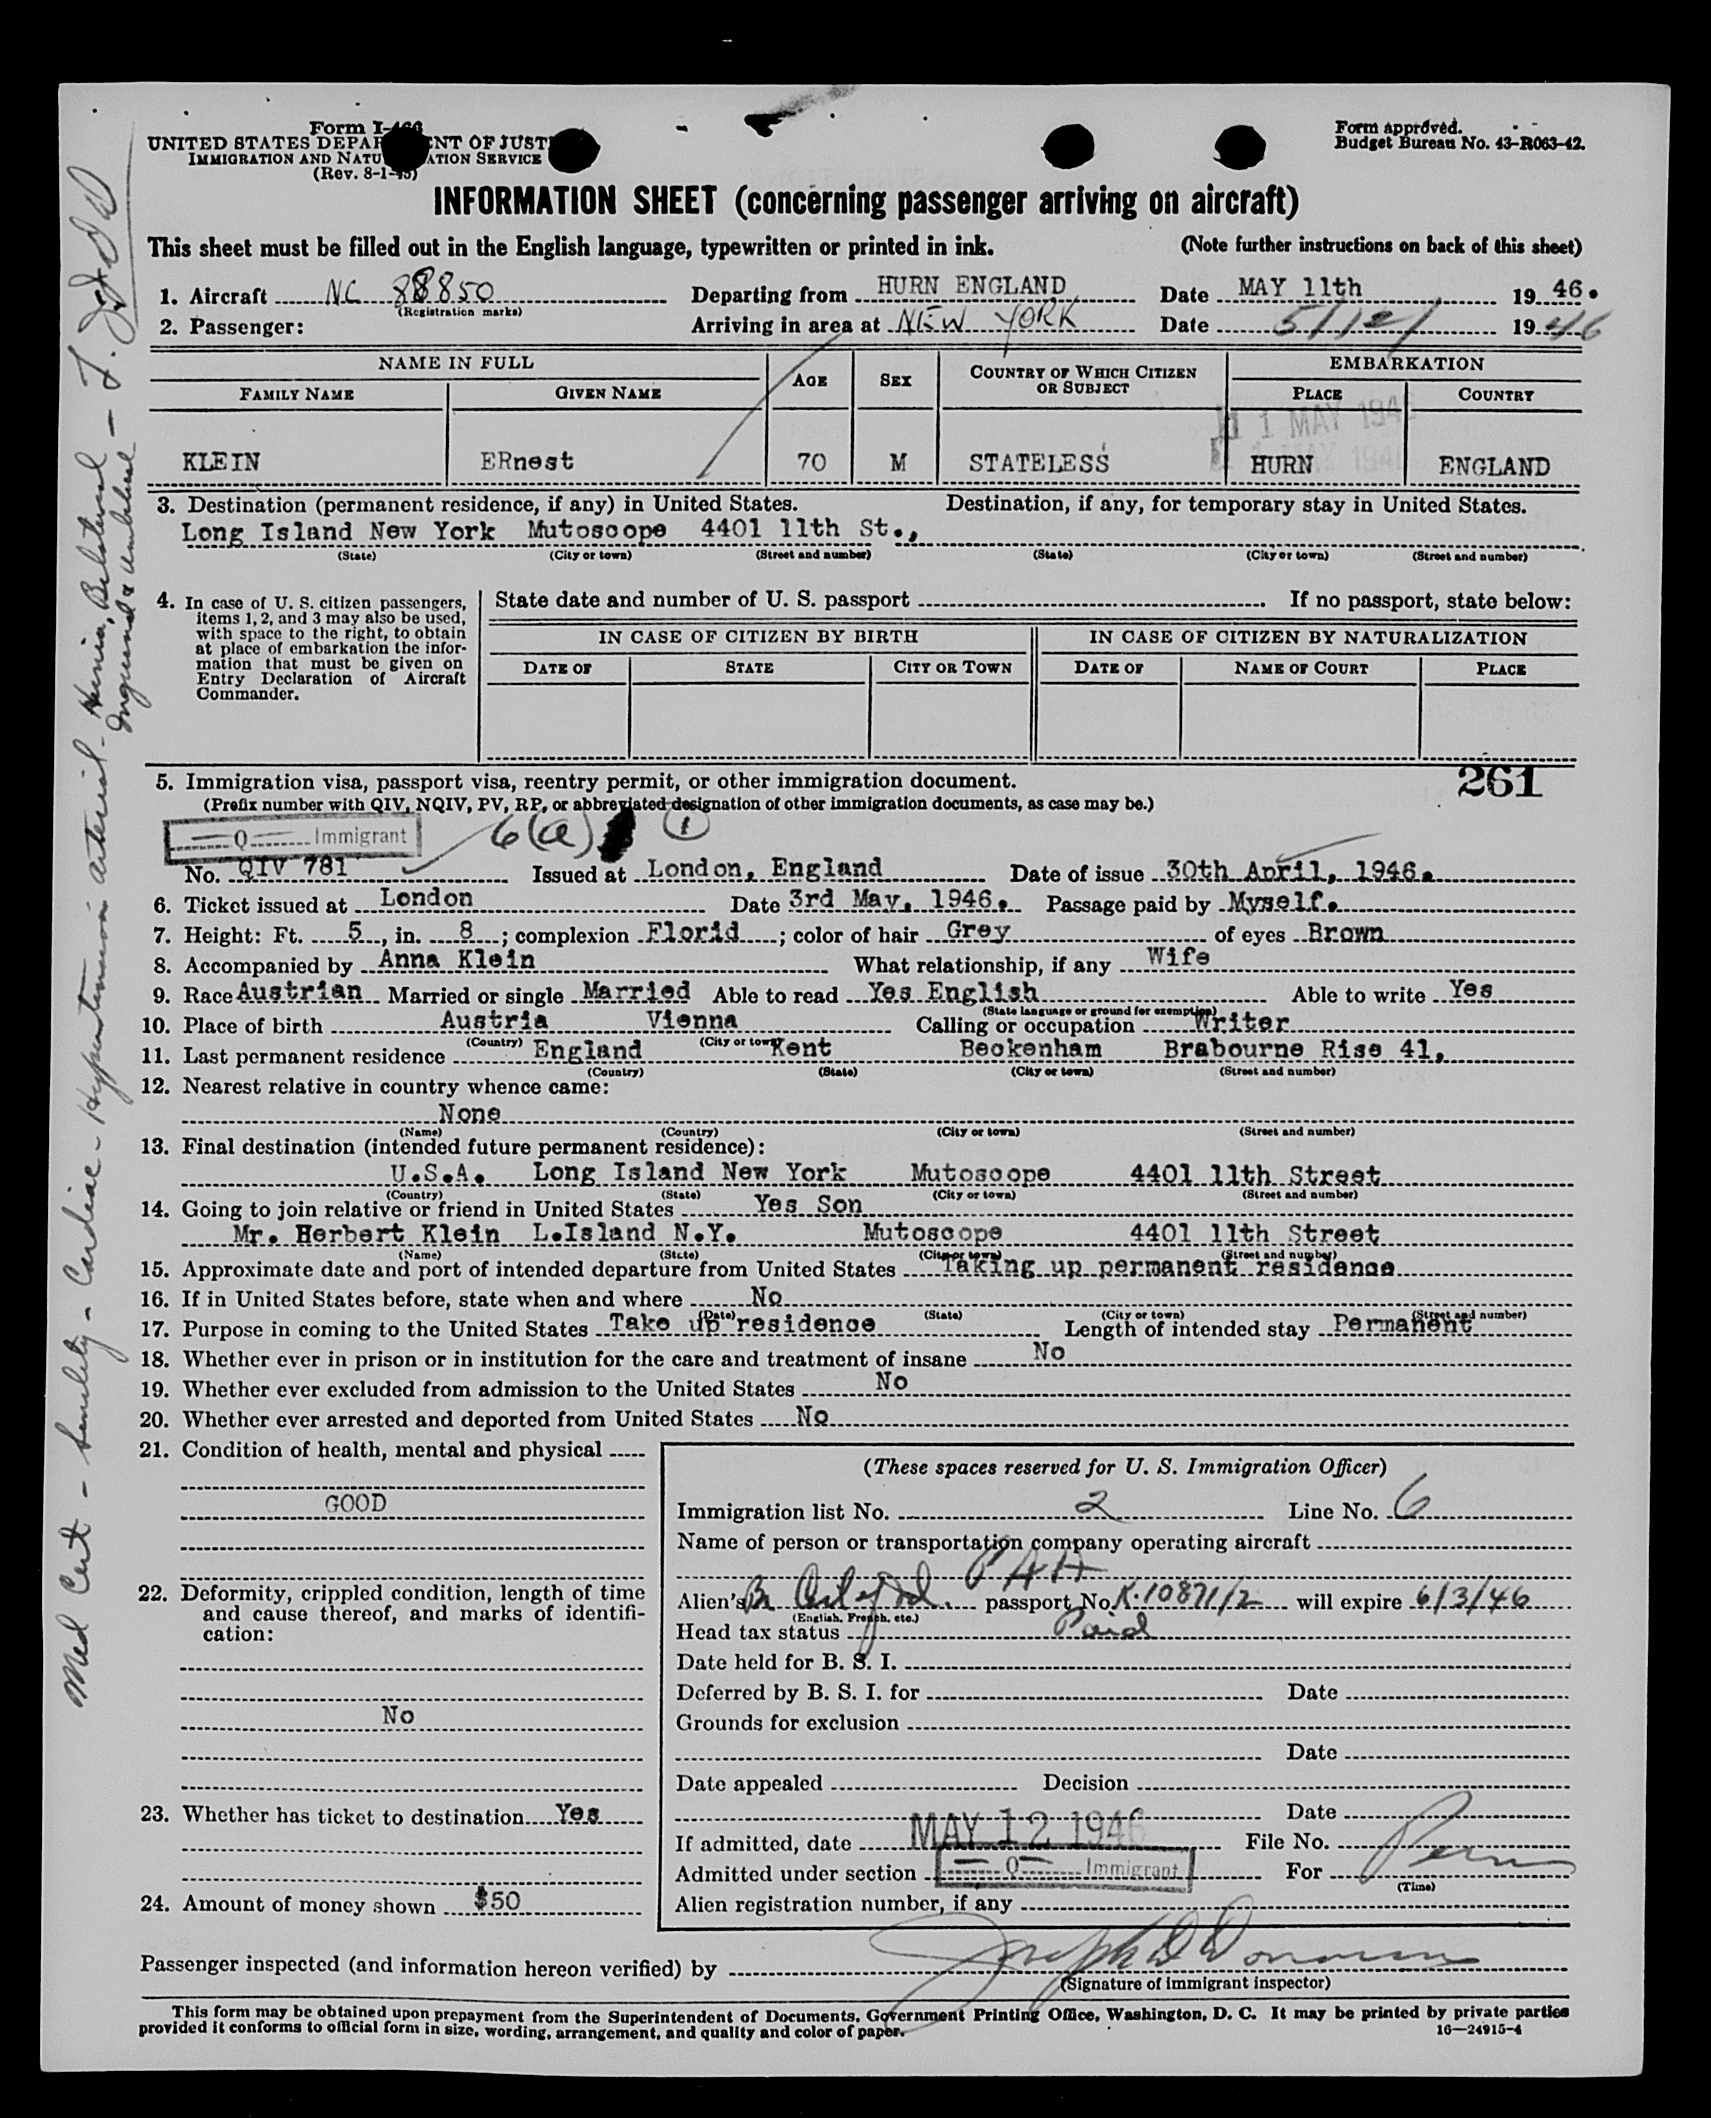 Form I-466
UNITED STATES DEPARTMENT OF JUSTICE
IMMIGRATION AND NATURALIZATION SERVICE
(Rev. 8-1-45)
Form approved.
Budget Bureau No. 43-R063-42.
INFORMATION SHEET (concerning passenger arriving on aircraft)
This sheet must be filled out in the English language, typewritten or printed in ink. (Note further instructions on back of this sheet)
1. Aircraft NC 88850 Departing from HURN ENGLAND Date MAY 11th 19 46.
(Registration marks)
2. Passenger: Arriving in area at NEW YORK Date 5/12/ 19 46
NAME IN FULL AGE SEX COUNTRY OF WHICH CITIZEN OR SUBJECT EMBARKATION
FAMILY NAME GIVEN NAME PLACE COUNTRY
11 MAY 194
MAY 194
KLEIN ERnest 70 M STATELESS HURN ENGLAND
3. Destination (permanent residence, if any) in United States. Destination, if any, for temporary stay in United States.
Long Island New York Mutoscope 4401 11th St.,
(State) (City or town) (Street and number) (State) (City or town) (Street and number)
4. In case of U. S. citizen passengers,
items 1, 2, and 3 may also be used,
with space to the right, to obtain
at place of embarkation the infor-
mation that must be given on
Entry Declaration of Aircraft
Commander.
State date and number of U. S. passport If no passport, state below:
IN CASE OF CITIZEN BY BIRTH IN CASE OF CITIZEN BY NATURALIZATION
DATE OF STATE CITY OR TOWN DATE OF NAME OF COURT PLACE
5. Immigration visa, passport visa, reentry permit, or other immigration document. 261
(Prefix number with QIV, NQIV, PV, RP, or abbreviated designation of other immigration documents, as case may be.)
Q Immigrant 6(a) 1
No. QIV 781 Issued at London, England Date of issue 30th April, 1946.
6. Ticket issued at London Date 3rd May, 1946. Passage paid by Myself.
7. Height: Ft. 5, in. 8; complexion Florid; color of hair Grey of eyes Brown
8. Accompanied by Anna Klein What relationship, if any Wife
9. Race Austrian Married or single Married Able to read Yes English Able to write Yes
(State language or ground for exemption)
10. Place of birth Austria Vienna Calling or occupation Writer
(Country) (City or town)
11. Last permanent residence England Kent Beckenham Brabourne Rise 41,
(Country) (State) (City or town) (Street and number)
12. Nearest relative in country whence came:
None
(Name) (Country) (City or town) (Street and number)
13. Final destination (intended future permanent residence):
U.S.A. Long Island New York Mutoscope 4401 11th Street
(Country) (State) (City or town) (Street and number)
14. Going to join relative or friend in United States Yes Son
Mr. Herbert Klein L.Island N.Y. Mutoscope 4401 11th Street
(Name) (State) (City or town) (Street and number)
15. Approximate date and port of intended departure from United States Taking up permanent residence
16. If in United States before, state when and where No
(Date) (State) (City or town) (Street and number)
17. Purpose in coming to the United States Take up residence Length of intended stay Permanent
18. Whether ever in prison or in institution for the care and treatment of insane No
19. Whether ever excluded from admission to the United States No
20. Whether ever arrested and deported from United States No
21. Condition of health, mental and physical
GOOD
22. Deformity, crippled condition, length of time
and cause thereof, and marks of identifi-
cation:
No
23. Whether has ticket to destination Yes
24. Amount of money shown $50
(These spaces reserved for U. S. Immigration Officer)
Immigration list No. 2 Line No. 6
Name of person or transportation company operating aircraft
PAA
Alien's Br Cert of Id. passport No. K.10871/2 will expire 6/3/46
(English, French, etc.)
Head tax status Paid
Date held for B. S. I.
Deferred by B. S. I. for Date
Grounds for exclusion
Date
Date appealed Decision
Date
If admitted, date MAY 12 1946 File No.
Admitted under section Q Immigrant For Perm
(Time)
Alien registration number, if any
Passenger inspected (and information hereon verified) by Joseph D Donovan
(Signature of immigrant inspector)
This form may be obtained upon prepayment from the Superintendent of Documents, Government Printing Office, Washington, D. C. It may be printed by private parties
provided it conforms to official form in size, wording, arrangement, and quality and color of paper. 16—24915-4
Med Cert - Senility - Cardiac - Hypertension arterial - Hernia, Bilateral
Inguinal & Umbilical